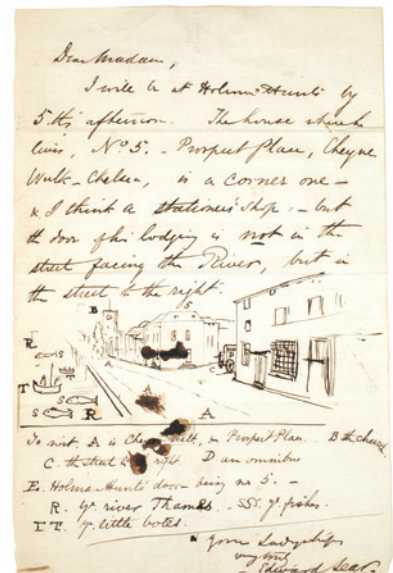 Dear Madam,
I will be at Holman Hunts by
5. this afternoon. The house where he
lives, No 5. - Prospect Place, Cheyne
Walk - Chelsea, is a corner one -
& I think a stationer's shop: - but
the door of his lodging is not in the
street facing the River, but in
the street to the right.
B 5
R S A C
T S
S R A A
To wit, A is Cheyne Walk, & Prospect Place. B the church
C. the street to the right D an omnibus
E. Holman Hunts' door - being no 5. -
R. ye river Thames. SSS. ye fishes.
TT. ye little botes.
Your Ladyship's
very truly
Edward Lear.